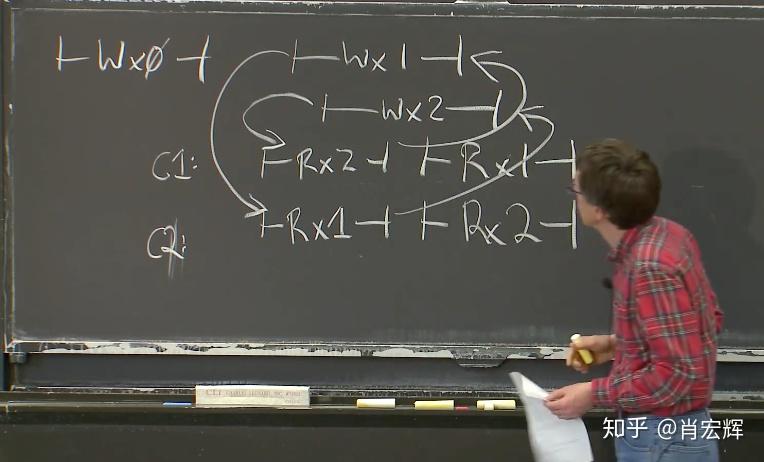 |-Wx0-| |-Wx1-|
|-Wx2-|
C1: |-Rx2-| |-Rx1-|
C2: |-Rx1-| |-Rx2-|
知乎 @肖宏辉